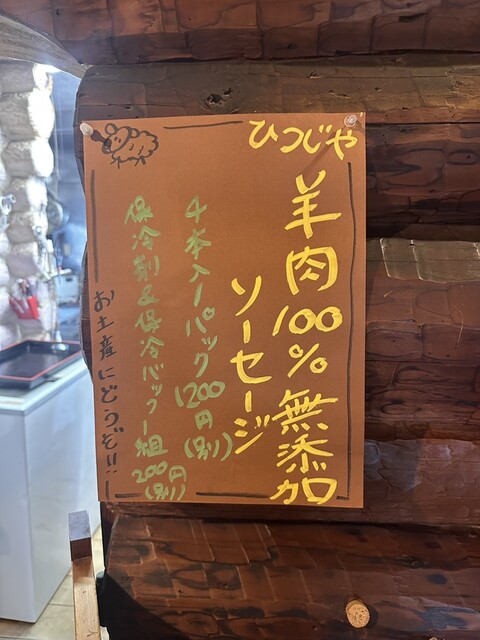 ひつじや
羊肉100%無添加
ソーセージ
4本入1パック1200円(別)
保冷剤&保冷バッグ一組200円(別)
お土産にどうぞ!!